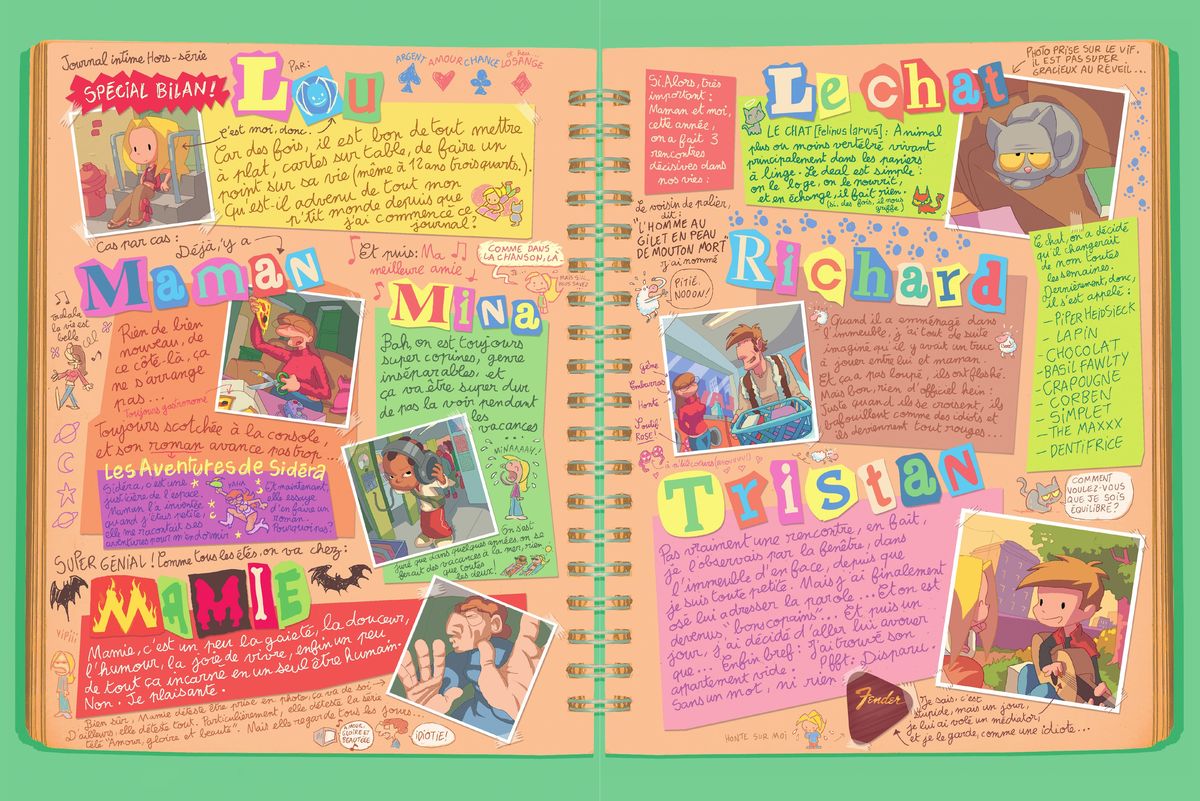 Journal intime Hors-série
SPÉCIAL BILAN!
PAR:
Lou
ARGENT AMOUR CHANCE et peu LOSANGE
c'est moi, donc.
Car des fois, il est bon de tout mettre
à plat, cartes sur table, de faire un
point sur sa vie (même à 12 ans trois quarts).
Qu'est-il advenu de tout mon
p'tit monde depuis que
j'ai commencé ce
journal?
Cas par cas:
Déjà, y'a
Maman
Tralala
la vie est
belle
Rien de bien
nouveau, de
ce côté-là, ça
ne s'arrange
pas...
Toujours gastronome
Toujours scotchée à la console,
et son roman avance pas trop...
Les Aventures de Sidéra
Sidéra, c'est une
justicière de l'espace.
Maman l'a inventée
quand j'étais petite,
elle me racontait ses
aventures pour m'endormir
YAHA
Et maintenant,
elle essaye
d'en faire un
roman.
Pourquoi pas?
Et puis: Ma
meilleure amie
COMME DANS
LA CHANSON, LÀ.
MAIS SI,
VOUS SAVEZ
Mina
Bah, on est toujours
super copines, genre
inséparables, et
ça va être super dur
de pas la voir pendant
les
vacances
...
MINAAAAV!
On s'est
juré que dans quelques années, on se
ferait des vacances à la mer, rien
que toutes
les deux!
SUPER GÉNIAL! Comme tous les étés, on va chez:
MAMIE
YIPIII
Mamie, c'est un peu la gaieté, la douceur,
l'humour, la joie de vivre, enfin un peu
de tout ça incarné en un seul être humain.
Non. Je plaisante.
Bien sûr, Mamie déteste être prise en photo, ça va de soi
D'ailleurs, elle déteste tout. Particulièrement, elle déteste la série
télé "Amour, gloire et beauté". Mais elle regarde tous les jours...
AMOUR,
GLOIRE ET
BEAUTÉÉÉ
IDIOTIE!
Si. Alors, très
important:
Maman et moi,
cette année,
on a fait 3
rencontres
décisives dans
nos vies:
Le chat
PHOTO PRISE SUR LE VIF.
IL EST PAS SUPER
GRACIEUX AU RÉVEIL...
LE CHAT [Felinus larvus]: Animal
plus ou moins vertébré vivant
principalement dans les paniers
à linge. Le deal est simple:
on le loge, on le nourrit,
et en échange, il fait rien.
(si: des fois, il nous
griffe)
Le chat, on a décidé
qu'il changerait
de nom toutes
les semaines.
Dernièrement, donc,
il s'est appelé:
- PIPER HEIDSIECK
- LAPIN
- CHOCOLAT
- BASIL FAWLTY
- CRAPOUGNE
- CORBEN
- SIMPLET
- THE MAXXX
- DENTIFRICE
COMMENT
VOULEZ-VOUS
QUE JE SOIS
ÉQUILIBRÉ?
Le voisin de palier,
dit:
"L'HOMME AU
GILET EN PEAU
DE MOUTON MORT"
y'a nommé
PITIÉ,
NOOON!
Richard
Gêne
Embarras
Honte
ROSE!
Quand il a emménagé dans
l'immeuble, j'ai tout de suite
imaginé qu'il y avait un truc
à jouer entre lui et maman.
Et ça a pas loupé, ils ont flashé.
Mais bon, rien d'officiel hein:
Juste quand ils se croisent, ils
bafouillent comme des idiots et
ils deviennent tout rouges...
Tristan
Pas vraiment une rencontre, en fait,
je l'observais par la fenêtre, dans
l'immeuble d'en face, depuis que
je suis toute petite. Mais j'ai finalement
osé lui adresser la parole... Et on est
devenus "bons copains"... Et puis un
jour, j'ai décidé d'aller lui avouer
que... Enfin bref: J'ai trouvé son
appartement vide. Pfft: Disparu.
Sans un mot, ni rien.
Fender
Je sais, c'est
stupide, mais un jour,
je lui ai volé un médiator,
et je le garde, comme une idiote...
HONTE SUR MOI